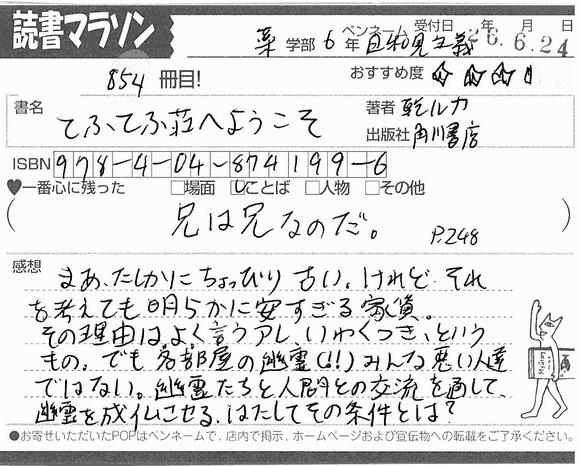 読書マラソン
薬 学部 6 年 ペンネーム 日和見主義 受付日 26年6月24日
854 冊目! おすすめ度 ☆☆☆
書名 てふてふ荘へようこそ
著者 乾ルカ
出版社 角川書店
ISBN 978-4-04-874199-6
♥一番心に残った □場面 ☑ことば □人物 □その他
(兄は兄なのだ。 P.248)
感想
まあ、たしかにちょっぴり古い。けれど、それ
を考えても明らかに安すぎる家賃。
その理由はよく言うアレ、いわくつき、という
もの。でも各部屋の幽霊(!!)みんな悪い人達
ではない。幽霊たちと人間との交流を通して、
幽霊を成仏させる、はたしてその条件とは?
●お寄せいただいたPOPはペンネームで、店内で掲示、ホームページおよび宣伝物への転載をご了承ください。